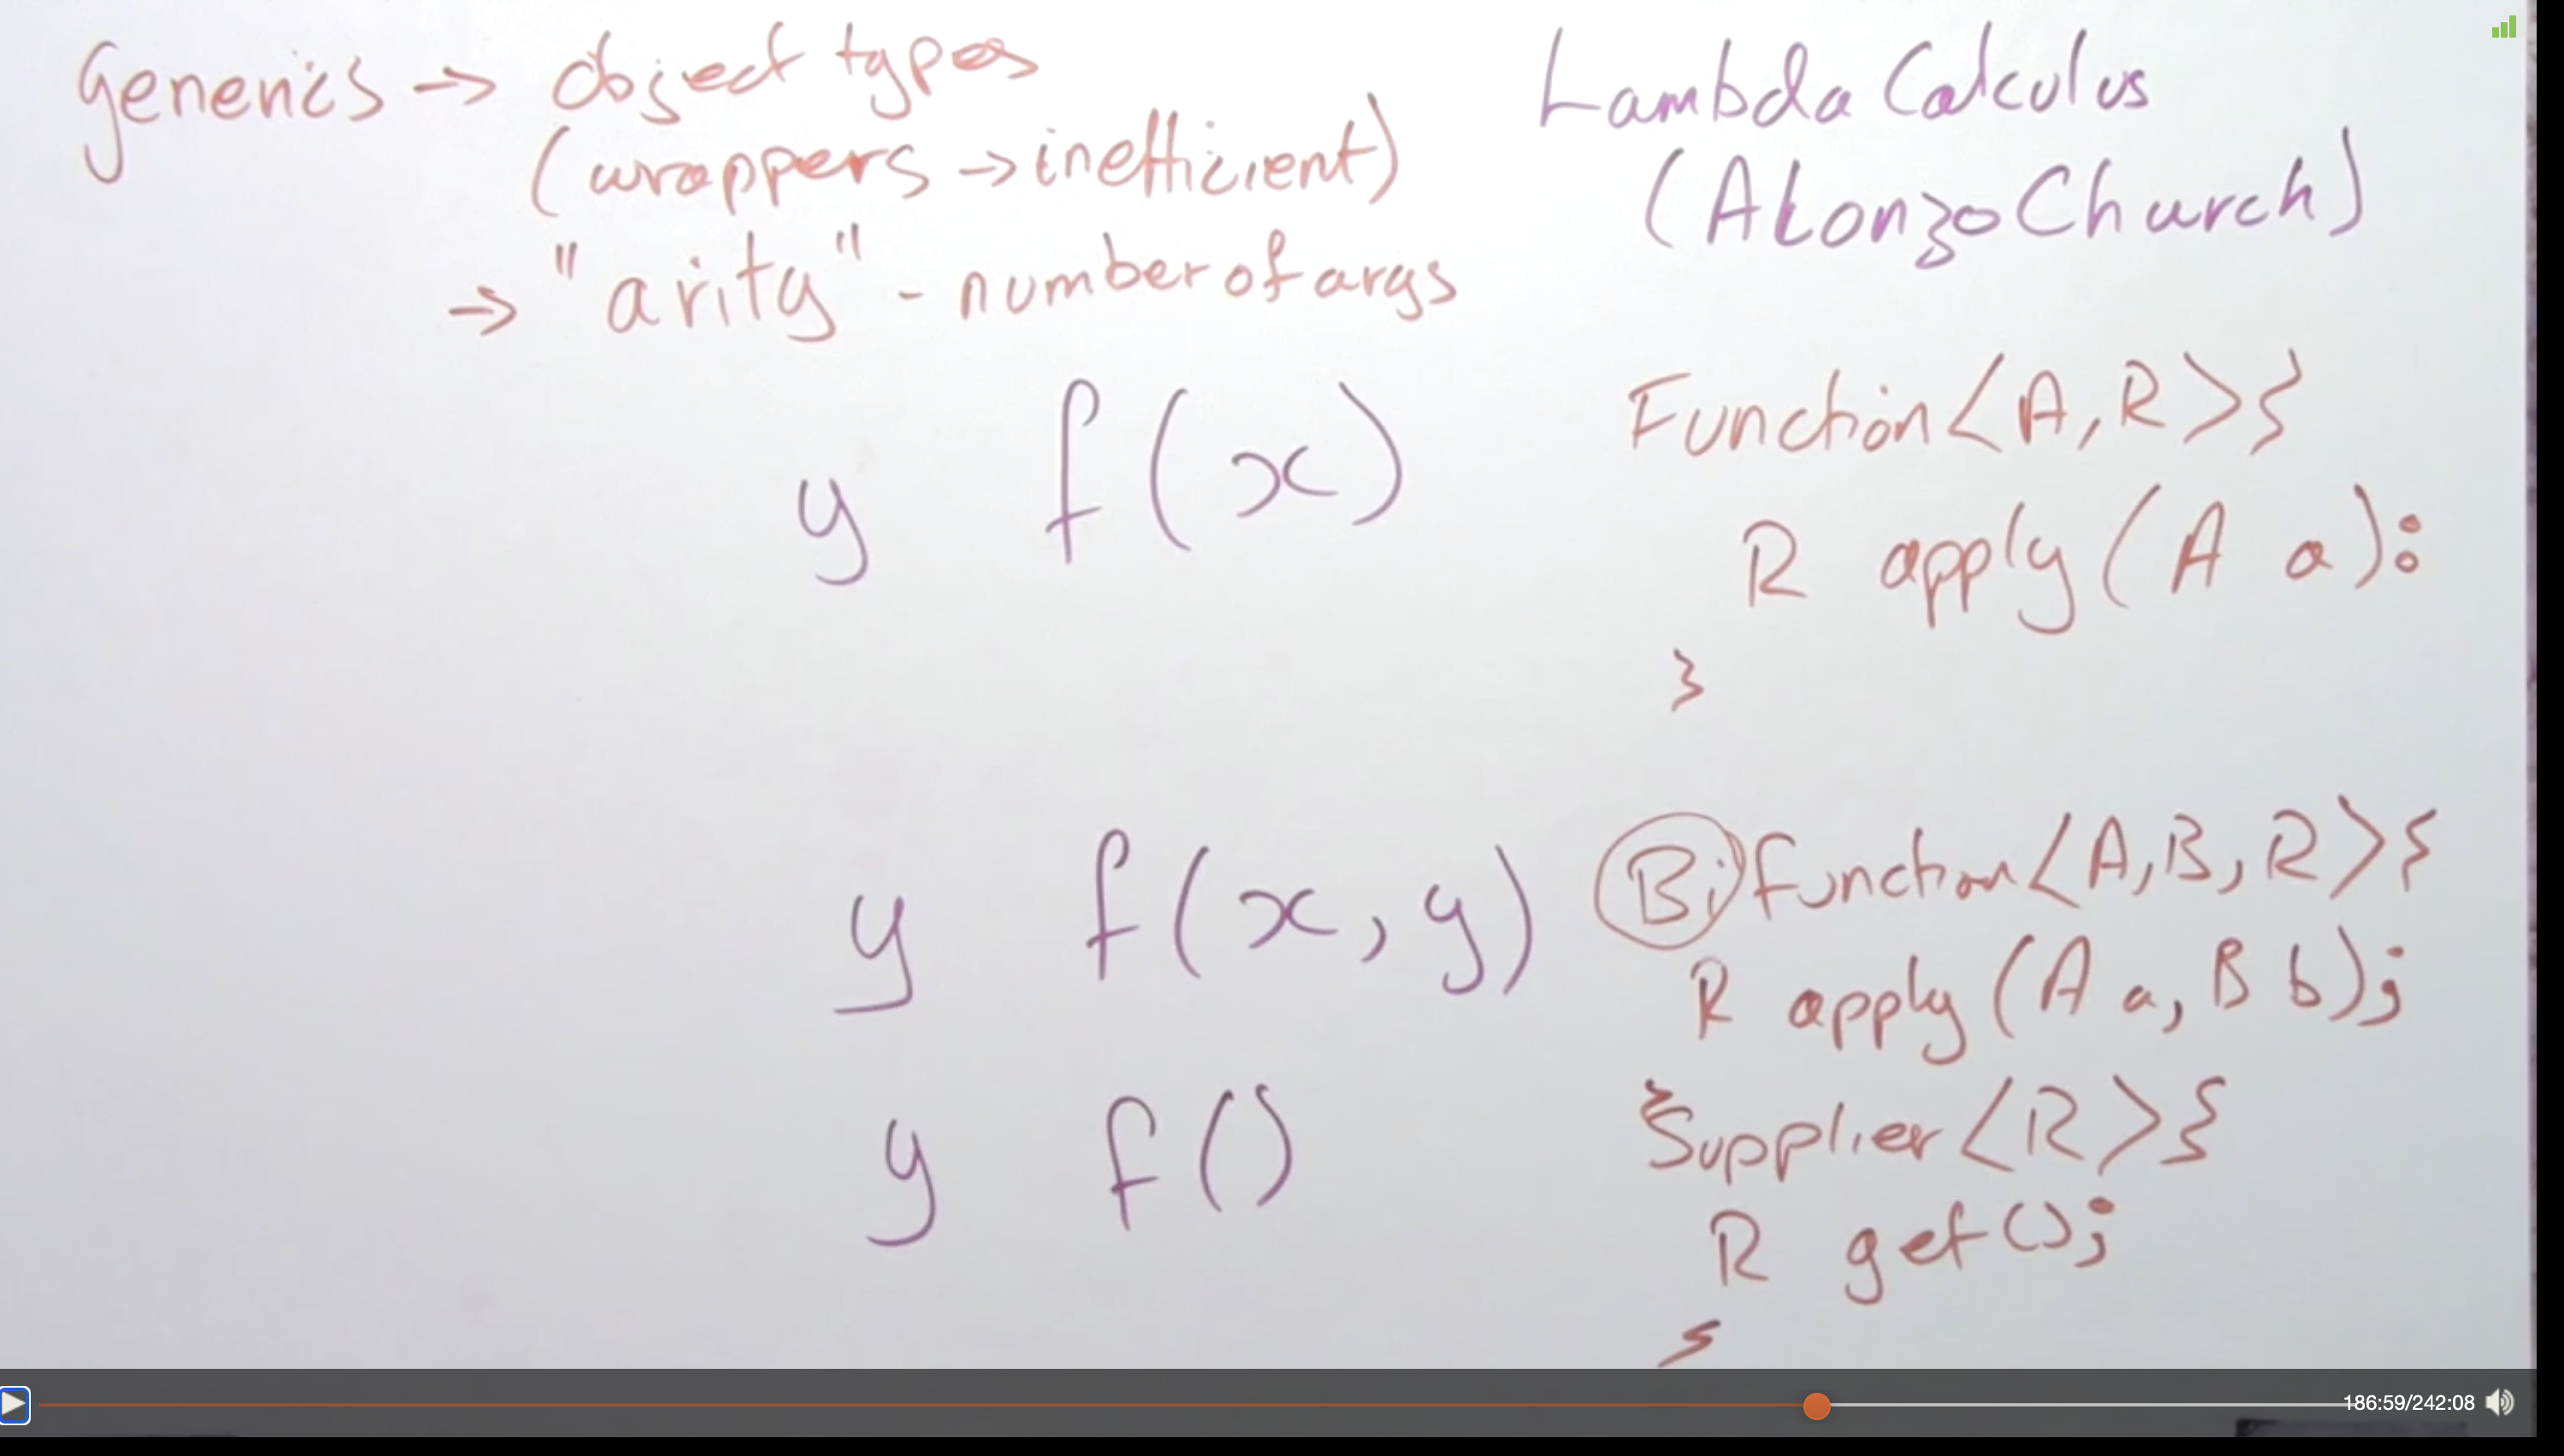 Generics → object types
(wrappers → inefficient)
→ "arity" - number of args
Lambda Calculus
(Alonzo Church)
y f(x)
Function<A,R>{
R apply(A a);
}
y f(x,y)
Bifunction<A,B,R>{
R apply(A a, B b);
}
y f()
Supplier<R>{
R get();
}
186:59/242:08